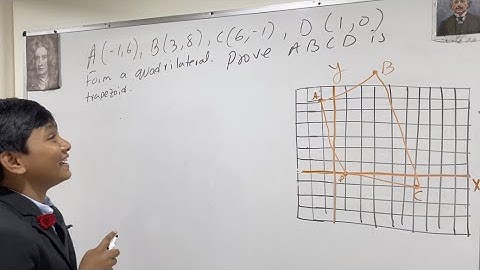 A(-1,6), B(3,8), C(6,-1), D(1,0)
Form a quadrilateral. Prove ABCD is
trapezoid.
y
B
A
D
C
X